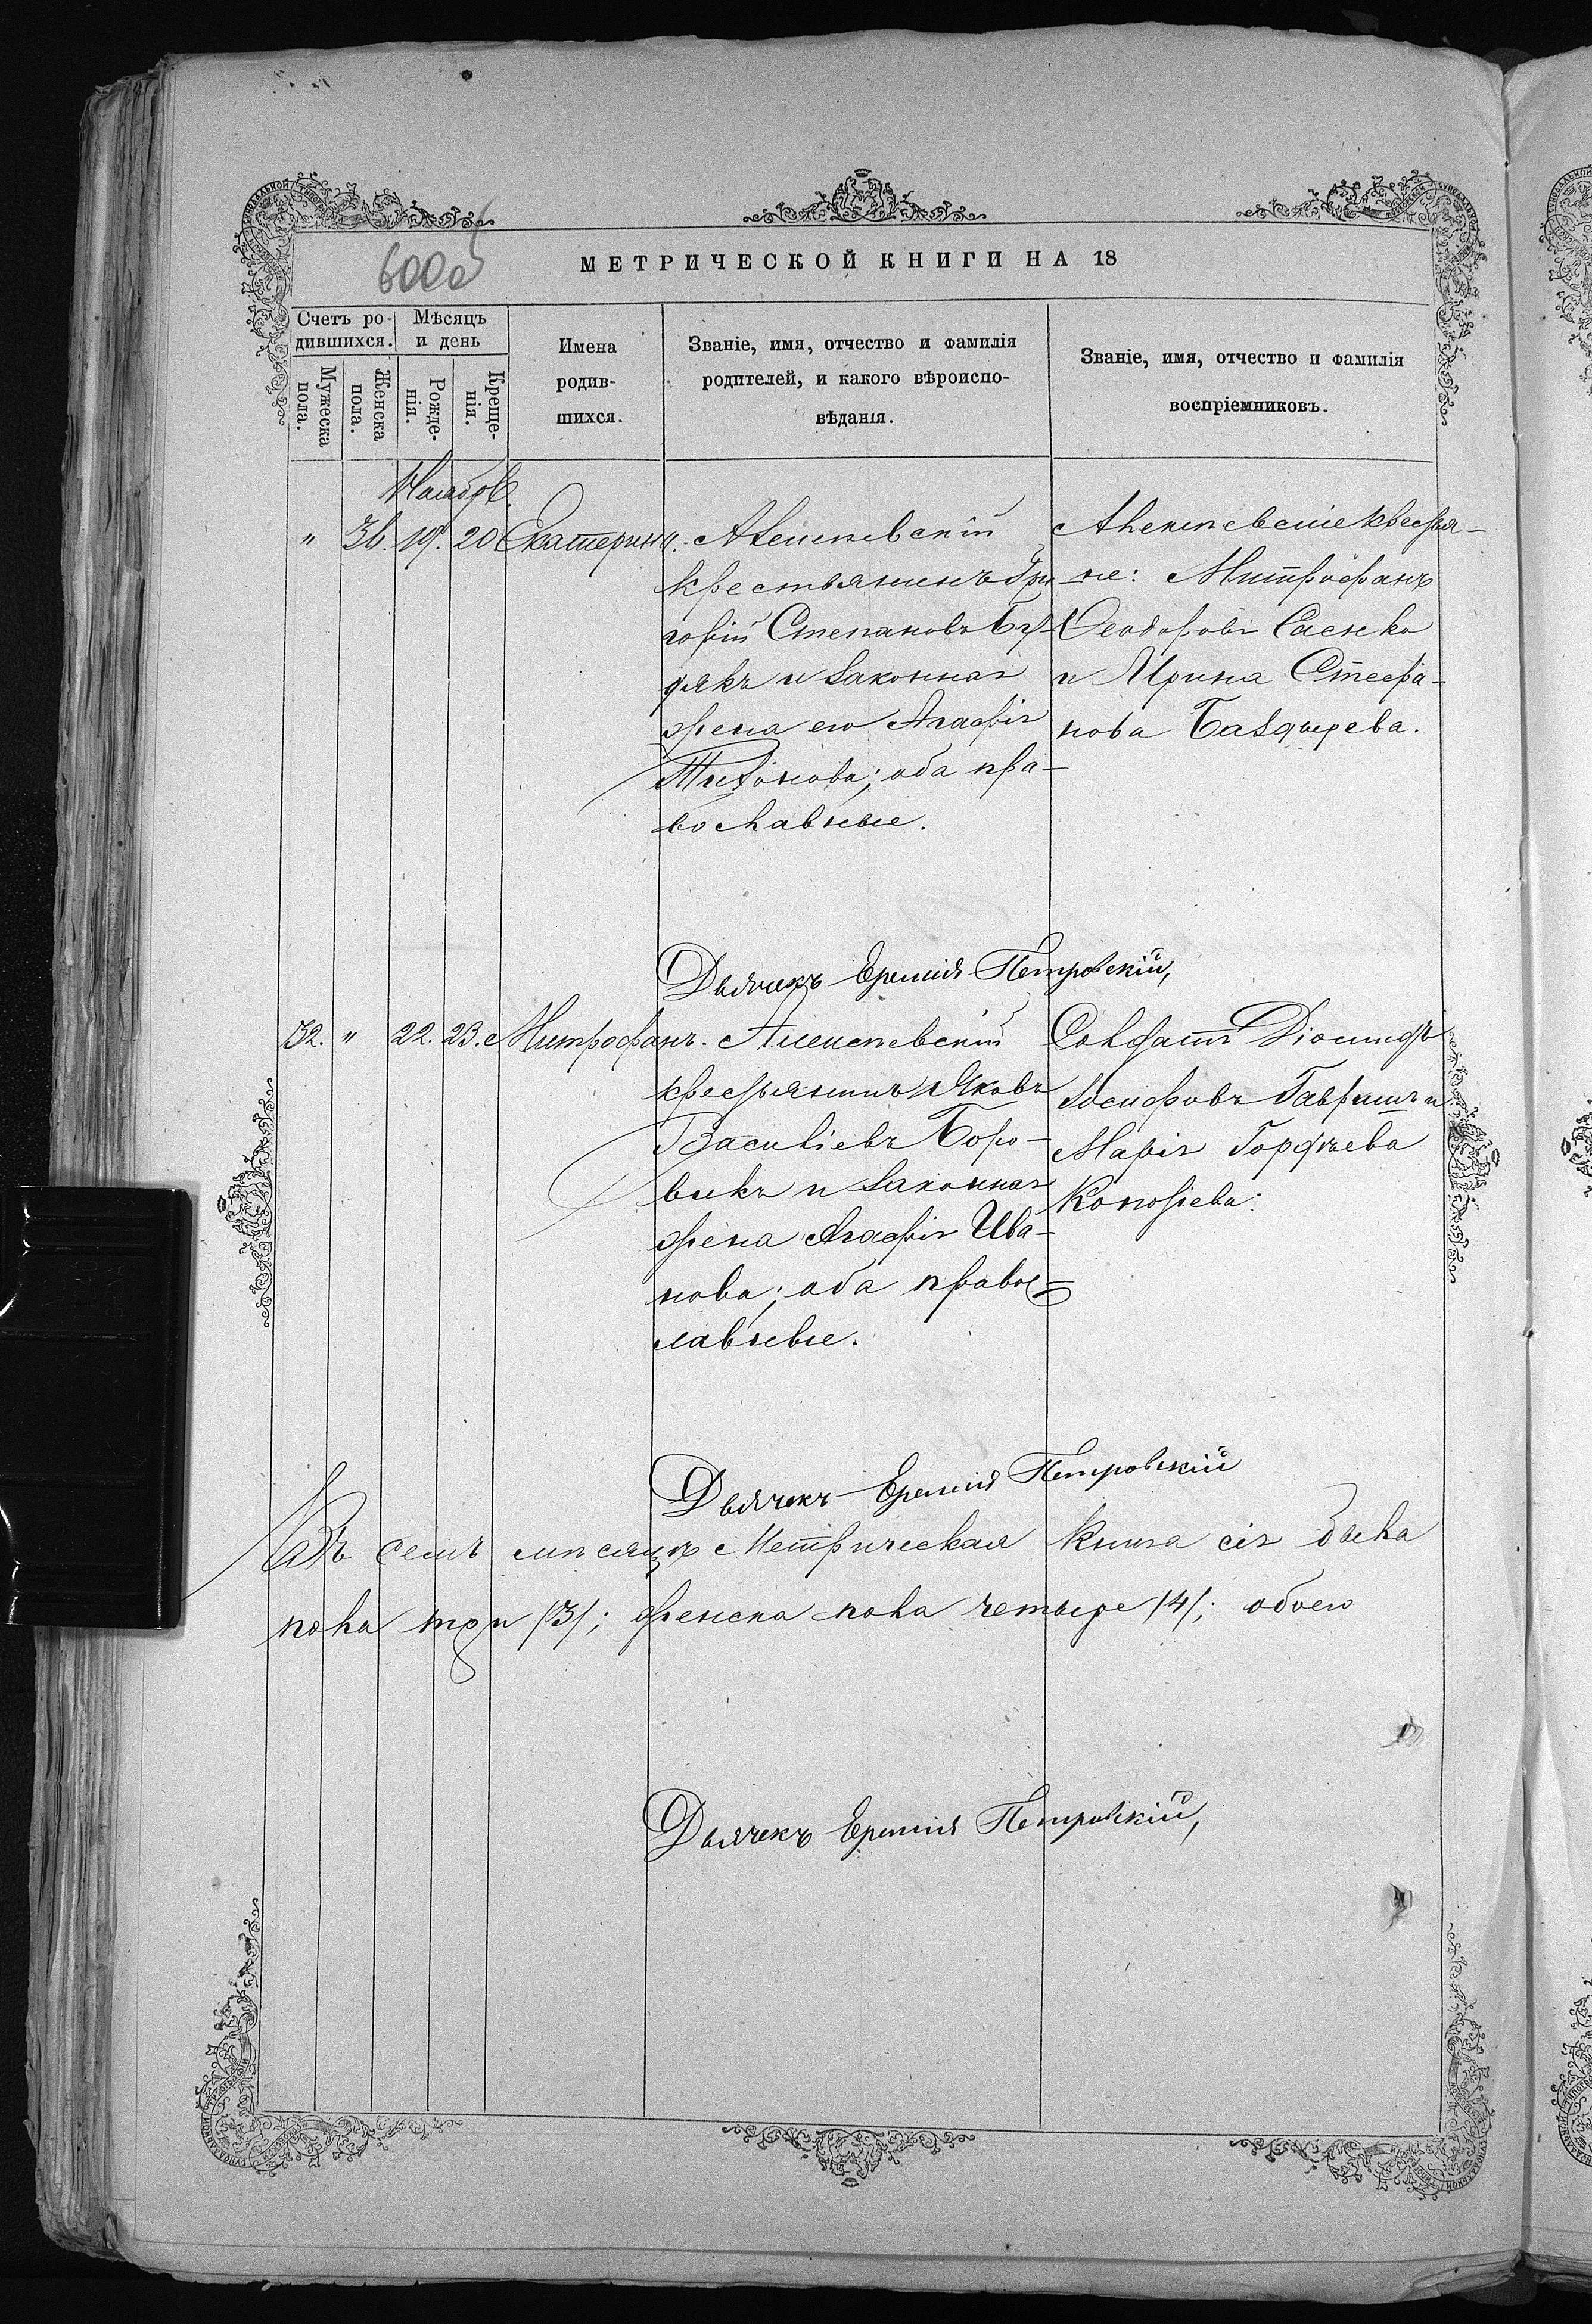 600 об
МЕТРИЧЕСКОЙ КНИГИ НА 18
Счетъ ро-
дившихся.
Мужеска
пола.
Женска
пола.
Мѣсяцъ
и день
Рожде-
нія.
Креще-
нія.
Имена
родив-
шихся.
Званіе, имя, отчество и фамилія
родителей, и какого вѣроиспо-
вѣданія.
Званіе, имя, отчество и фамилія
воспріемниковъ.
Ноября
" 36. 19. 20 Екатерина.
Алексѣевскій
крестьянинъ Гри
горій Степановъ Бу-
дякъ и законная
жена его Агафія
Тихонова; оба пра-
вославные.
Алексѣевскіе крестья-
не: Митрофанъ
Ѳеодоровъ Саенко
и Ирина Стефа-
нова Баздырева.
Дьячекъ Еремія Петровскій,
32. " 22. 23. Митрофанъ.
Алексѣевскій
крестьянинъ Яковъ
Василіевъ Боро-
викъ и законная
жена Агафія Ива-
нова; оба правос=
лавные.
Солдатъ Діомидъ
Іосифовъ Гавришъ и
Марія Гордѣева
Дьячекъ Еремія Петровскій
Въ семъ мѣсяцѣ Метрическая книга сія была
пола три /3/; женска пола четыре /4/; обоего
Дьячекъ Еремія Петровскій,